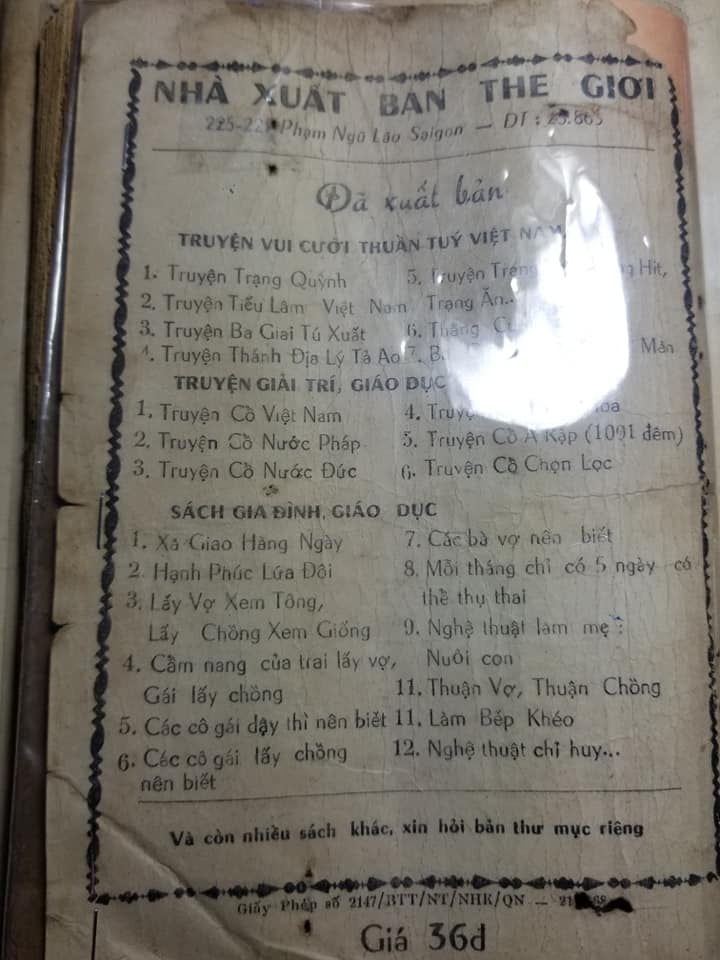 NHÀ XUẤT BẢN THẾ GIỚI
Phạm Ngũ Lão Saigon — DT :
Đã xuất bản
TRUYỆN VUI CƯỜI THUẦN TUÝ VIỆT NAM
1. Truyện Trạng Quỳnh
2. Truyện Tiếu Lâm Việt Nam
3. Truyện Ba Giai Tú Xuất
4. Truyện Thánh Địa Lý Tả Ao
5. Truyện Hít,
Trạng Ăn..
6. Thằng
7. Mản
TRUYỆN GIẢI TRÍ, GIÁO DỤC
1. Truyện Cổ Việt Nam
2. Truyện Cổ Nước Pháp
3. Truyện Cổ Nước Đức
4.
5. Truyện Cổ Á Rập (1001 đêm)
6. Truyện Cổ Chọn Lọc
SÁCH GIA ĐÌNH, GIÁO DỤC
1. Xã Giao Hàng Ngày
2. Hạnh Phúc Lứa Đôi
3. Lấy Vợ Xem Tông,
Lấy Chồng Xem Giống
4. Cầm nang của trai lấy vợ,
Gái lấy chồng
5. Các cô gái dậy thì nên biết
6. Các cô gái lấy chồng
nên biết
7. Các bà vợ nên biết
8. Mỗi tháng chỉ có 5 ngày có
thể thụ thai
9. Nghệ thuật làm mẹ :
Nuôi con
11. Thuận Vợ, Thuận Chồng
11. Làm Bếp Khéo
12. Nghệ thuật chỉ huy...
Và còn nhiều sách khác, xin hỏi bản thư mục riêng
Giấy Phép số 2147/BTT/NT/NHK/QN —
Giá 36đ